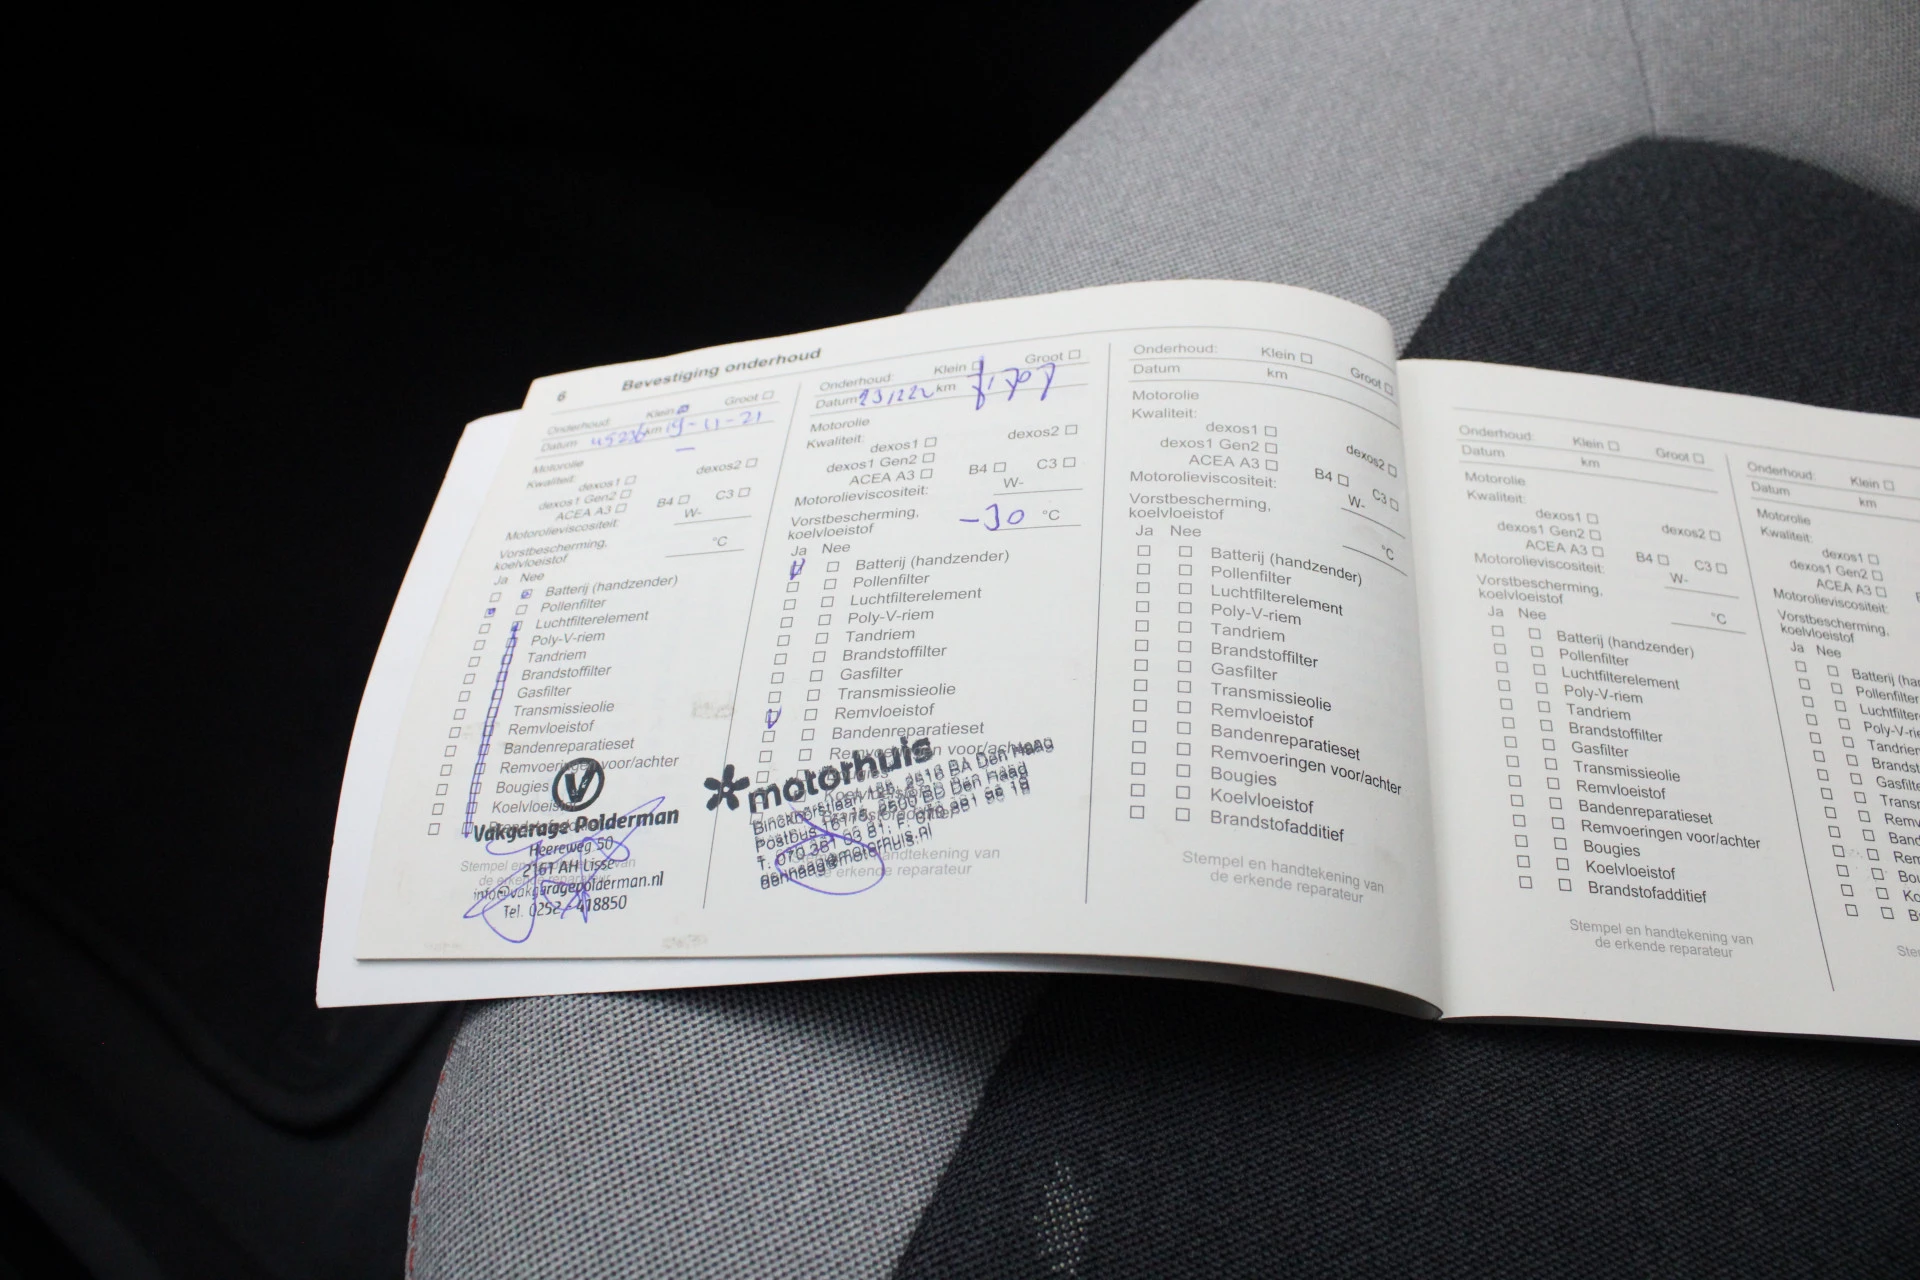 6 Bevestiging onderhoud
Onderhoud: Klein Groot
Datum 45236 km 19-11-21
Motorolie
Kwaliteit:
dexos1 dexos2
dexos1 Gen2
ACEA A3 B4 C3
Motorolieviscositeit: W-
Vorstbescherming,
koelvloeistof °C
Ja Nee
Batterij (handzender)
Pollenfilter
Luchtfilterelement
Poly-V-riem
Tandriem
Brandstoffilter
Gasfilter
Transmissieolie
Remvloeistof
Bandenreparatieset
Remvoeringen voor/achter
Bougies
Koelvloeistof
Vakgarage Polderman
Heereweg 50
2161 AH Lisse
info@vakgaragepolderman.nl
Tel. 0252-418850
Onderhoud: Klein Groot
Datum km
Motorolie
Kwaliteit:
dexos1 dexos2
dexos1 Gen2
ACEA A3 B4 C3
Motorolieviscositeit: W-
Vorstbescherming,
koelvloeistof -30 °C
Ja Nee
Batterij (handzender)
Pollenfilter
Luchtfilterelement
Poly-V-riem
Tandriem
Brandstoffilter
Gasfilter
Transmissieolie
Remvloeistof
Bandenreparatieset
Remvoeringen voor/achter
motorhuis
Binckhorstlaan 2516 BA Den Haag
Postbus 2500 BD Den Haag
denhaag@motorhuis.nl
handtekening van
de erkende reparateur
Onderhoud: Klein Groot
Datum km
Motorolie
Kwaliteit:
dexos1 dexos2
dexos1 Gen2
ACEA A3 B4 C3
Motorolieviscositeit: W-
Vorstbescherming,
koelvloeistof °C
Ja Nee
Batterij (handzender)
Pollenfilter
Luchtfilterelement
Poly-V-riem
Tandriem
Brandstoffilter
Gasfilter
Transmissieolie
Remvloeistof
Bandenreparatieset
Remvoeringen voor/achter
Bougies
Koelvloeistof
Brandstofadditief
Stempel en handtekening van
de erkende reparateur
Onderhoud: Klein Groot
Datum km
Motorolie
Kwaliteit:
dexos1 dexos2
dexos1 Gen2
ACEA A3 B4 C3
Motorolieviscositeit: W-
Vorstbescherming,
koelvloeistof °C
Ja Nee
Batterij (handzender)
Pollenfilter
Luchtfilterelement
Poly-V-riem
Tandriem
Brandstoffilter
Gasfilter
Transmissieolie
Remvloeistof
Bandenreparatieset
Remvoeringen voor/achter
Bougies
Koelvloeistof
Brandstofadditief
Stempel en handtekening van
de erkende reparateur
Onderhoud: Klein
Datum km
Motorolie
Kwaliteit:
dexos1
dexos1 Gen2
ACEA A3
Motorolieviscositeit:
Vorstbescherming,
koelvloeistof
Ja Nee
Batterij (ha
Pollenfilter
Luchtfilter
Poly-V-r
Tandrien
Brandst
Gasfilte
Trans
Remv
Band
Rem
Bou
Ko
B
Ste